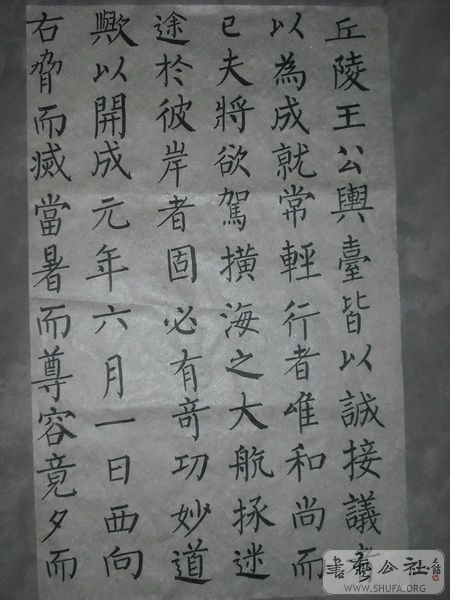 丘陵王公輿臺皆以誠接議
以為成就常輕行者唯和尚而
已夫將欲駕撗海之大航拯迷
途於彼岸者固必有竒功妙道
歟以開成元年六月一日西向
右脅而滅當暑而尊容竟夕而
書藝公社
WWW.SHUFA.ORG